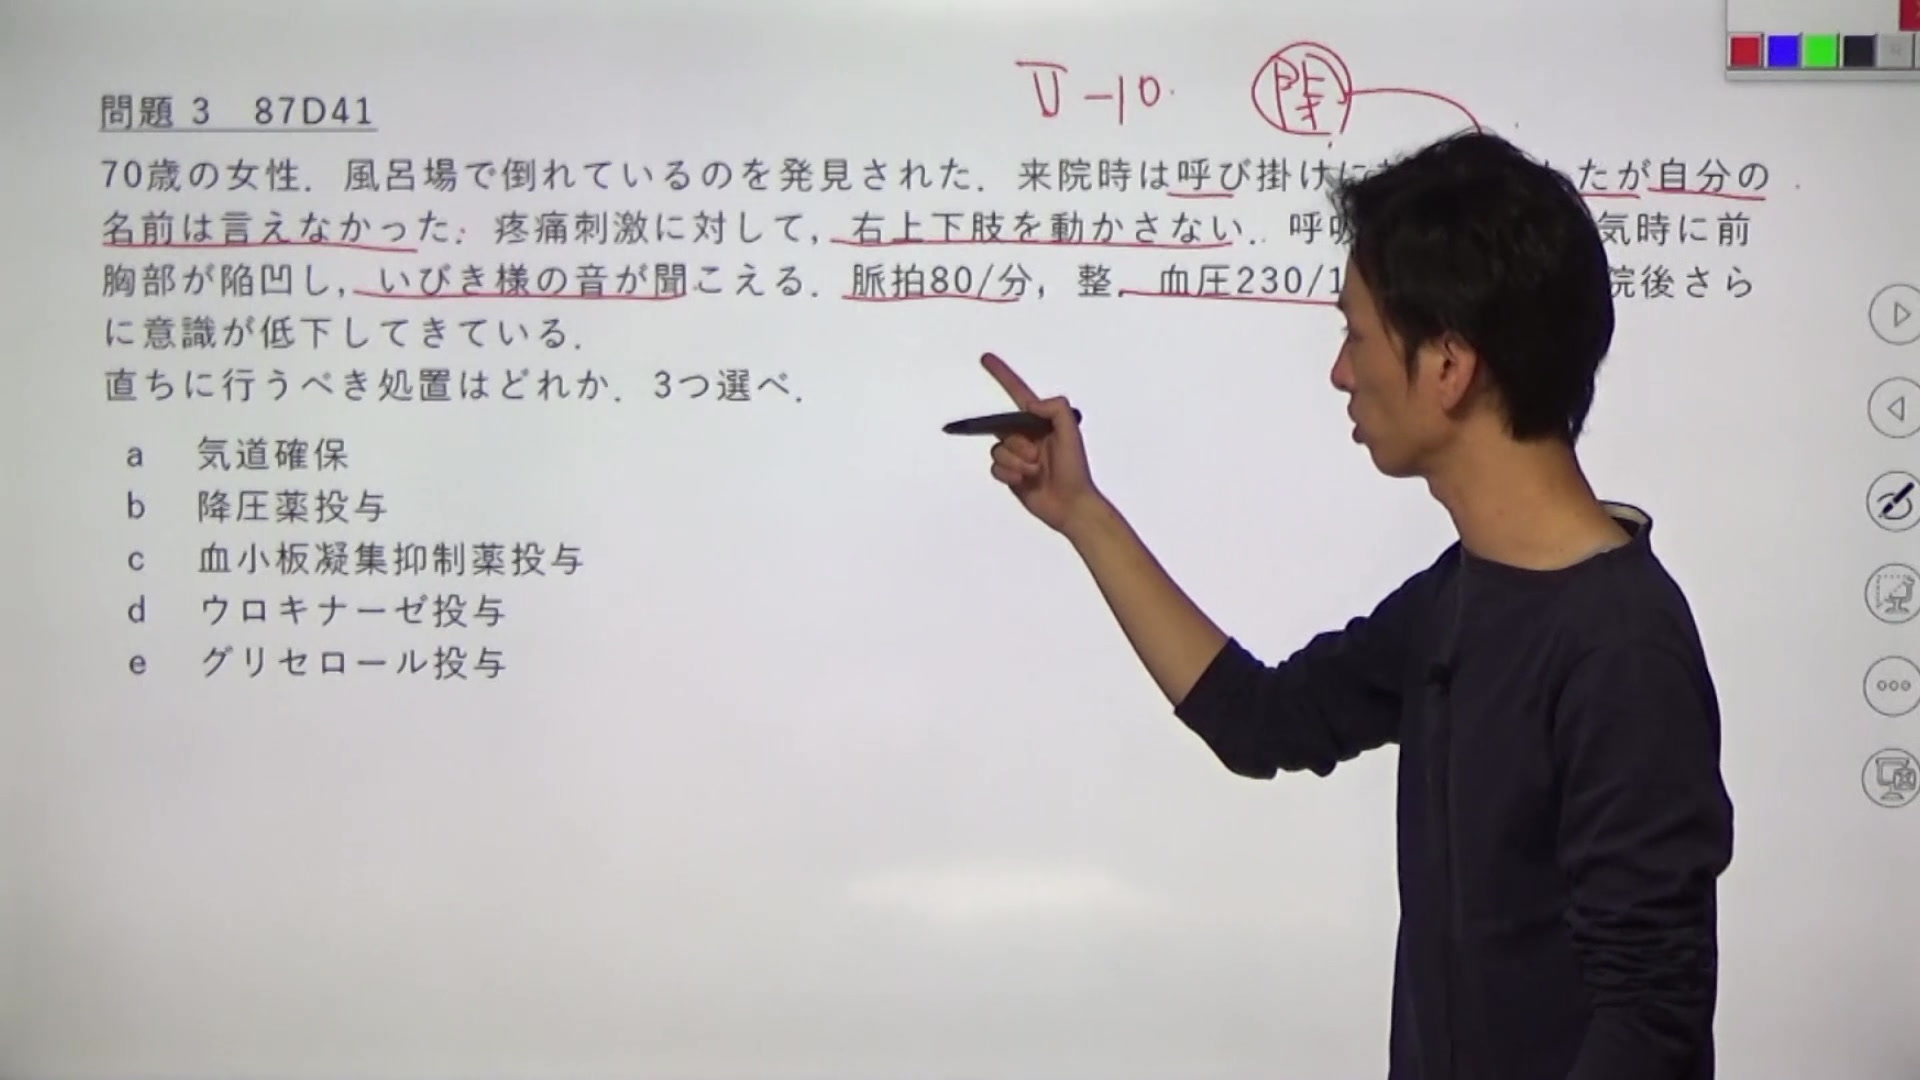 Ⅱ-10.
閉
問題 3 87D41
70歳の女性．風呂場で倒れているのを発見された．来院時は呼び掛けに たが自分の
名前は言えなかった．疼痛刺激に対して，右上下肢を動かさない．呼 気時に前
胸部が陥凹し，いびき様の音が聞こえる．脈拍80/分，整．血圧230/1 院後さら
に意識が低下してきている．
直ちに行うべき処置はどれか．3つ選べ．
a 気道確保
b 降圧薬投与
c 血小板凝集抑制薬投与
d ウロキナーゼ投与
e グリセロール投与